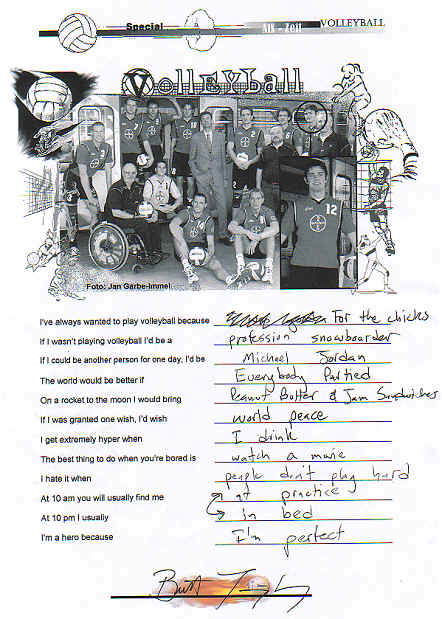 Special
Aus - Zeit
VOLLEYBALL
VOLLEYball
12
Foto: Jan Garbe-Immel
I've always wanted to play volleyball because For the chicks
If I wasn't playing volleyball I'd be a profession snowboarder
If I could be another person for one day, I'd be Michael Jordan
The world would be better if Everybody Partied
On a rocket to the moon I would bring Peanut Butter & Jam Sandwiches
If I was granted one wish, I'd wish world peace
I get extremely hyper when I drink
The best thing to do when you're bored is watch a movie
I hate it when people don't play hard
At 10 am you will usually find me at practice
At 10 pm I usually in bed
I'm a hero because I'm perfect